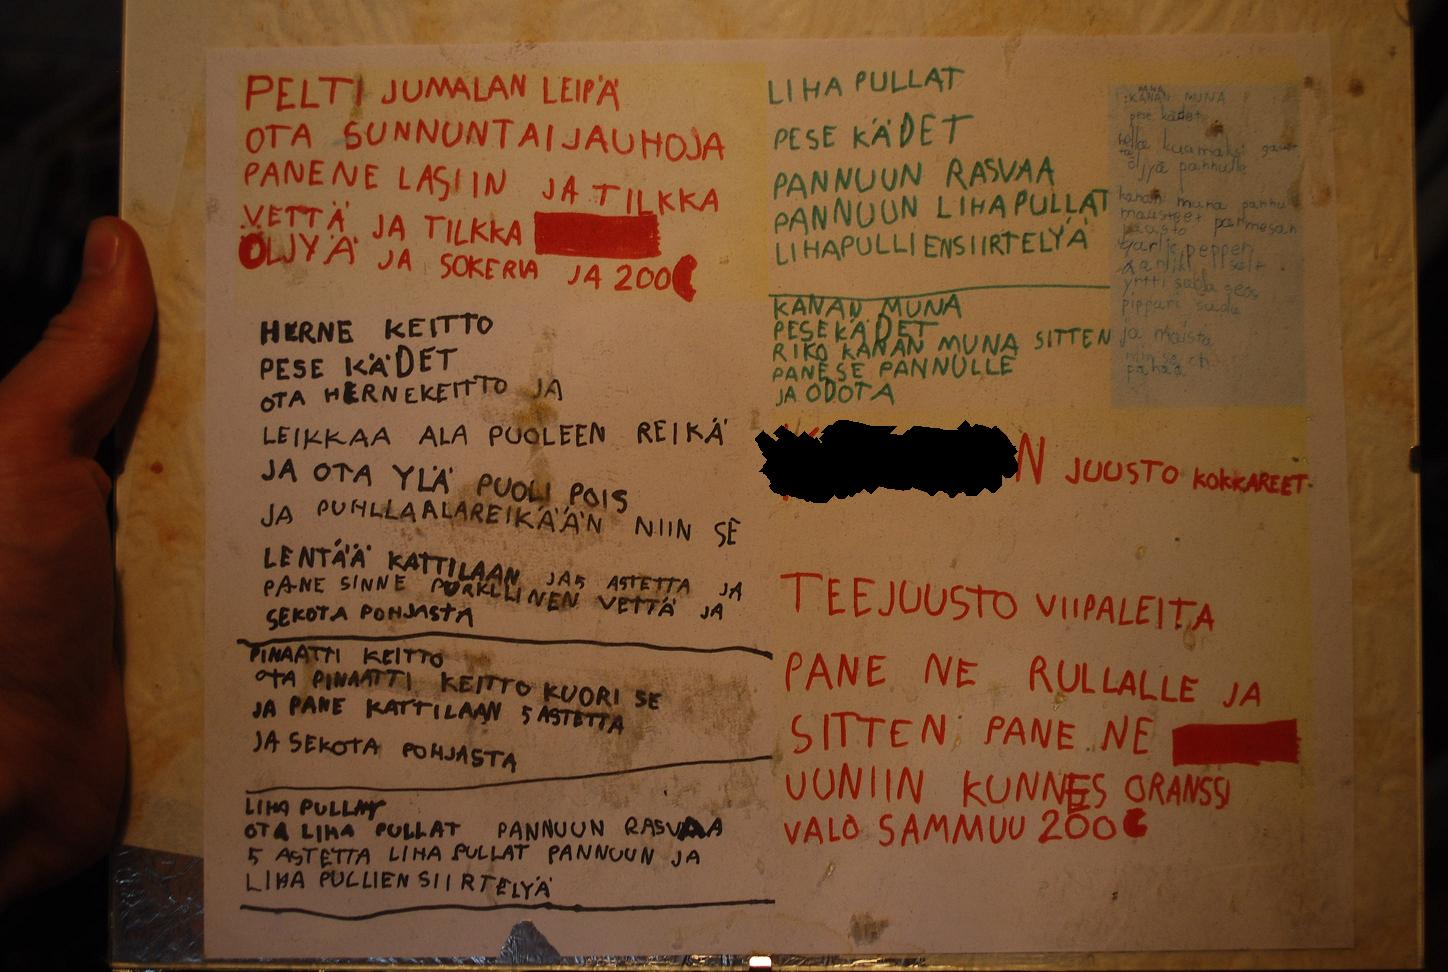 PELTI JUMALAN LEIPÄ
OTA SUNNUNTAIJAUHOJA
PANENE LASIIN JA TILKKA
VETTÄ JA TILKKA
ÖLJYÄ JA SOKERIA JA 200
HERNE KEITTO
PESE KÄDET
OTA HERNEKEITTO JA
LEIKKAA ALA PUOLEEN REIKÄ
JA OTA YLÄ PUOLI POIS
JA PUHLLAALAREIKÄÄN NIIN SE
LENTÄÄ KATTILAAN JA5 ASTETTA JA
PANE SINNE PURKLLINEN VETTÄ JA
SEKOTA POHJASTA
PINAATTI KEITTO
OTA PINAATTI KEITTO KUORI SE
JA PANE KATTILAAN 5 ASTETTA
JA SEKOTA POHJASTA
LIHA PULLAT
OTA LIHA PULLAT PANNUUN RASVAA
5 ASTETTA LIHA PULLAT PANNUUN JA
LIHA PULLIEN SIIRTELYÄ
LIHA PULLAT
PESE KÄDET
PANNUUN RASVAA
PANNUUN LIHAPULLAT
LIHAPULLIENSIIRTELYÄ
KANAN MUNA
PESEKÄDET
RIKO KANAN MUNA SITTEN
PANESE PANNULLE
JA ODOTA
KANAN MUNA
pese kädet
öljyä pannulle
kanan muna
mausteet parmesan
pippari
ja maista
N JUUSTO KOKKAREET
TEEJUUSTO VIIPALEITA
PANE NE RULLALLE JA
SITTEN PANE NE
UUNIIN KUNNES ORANSSI
VALO SAMMUU 200